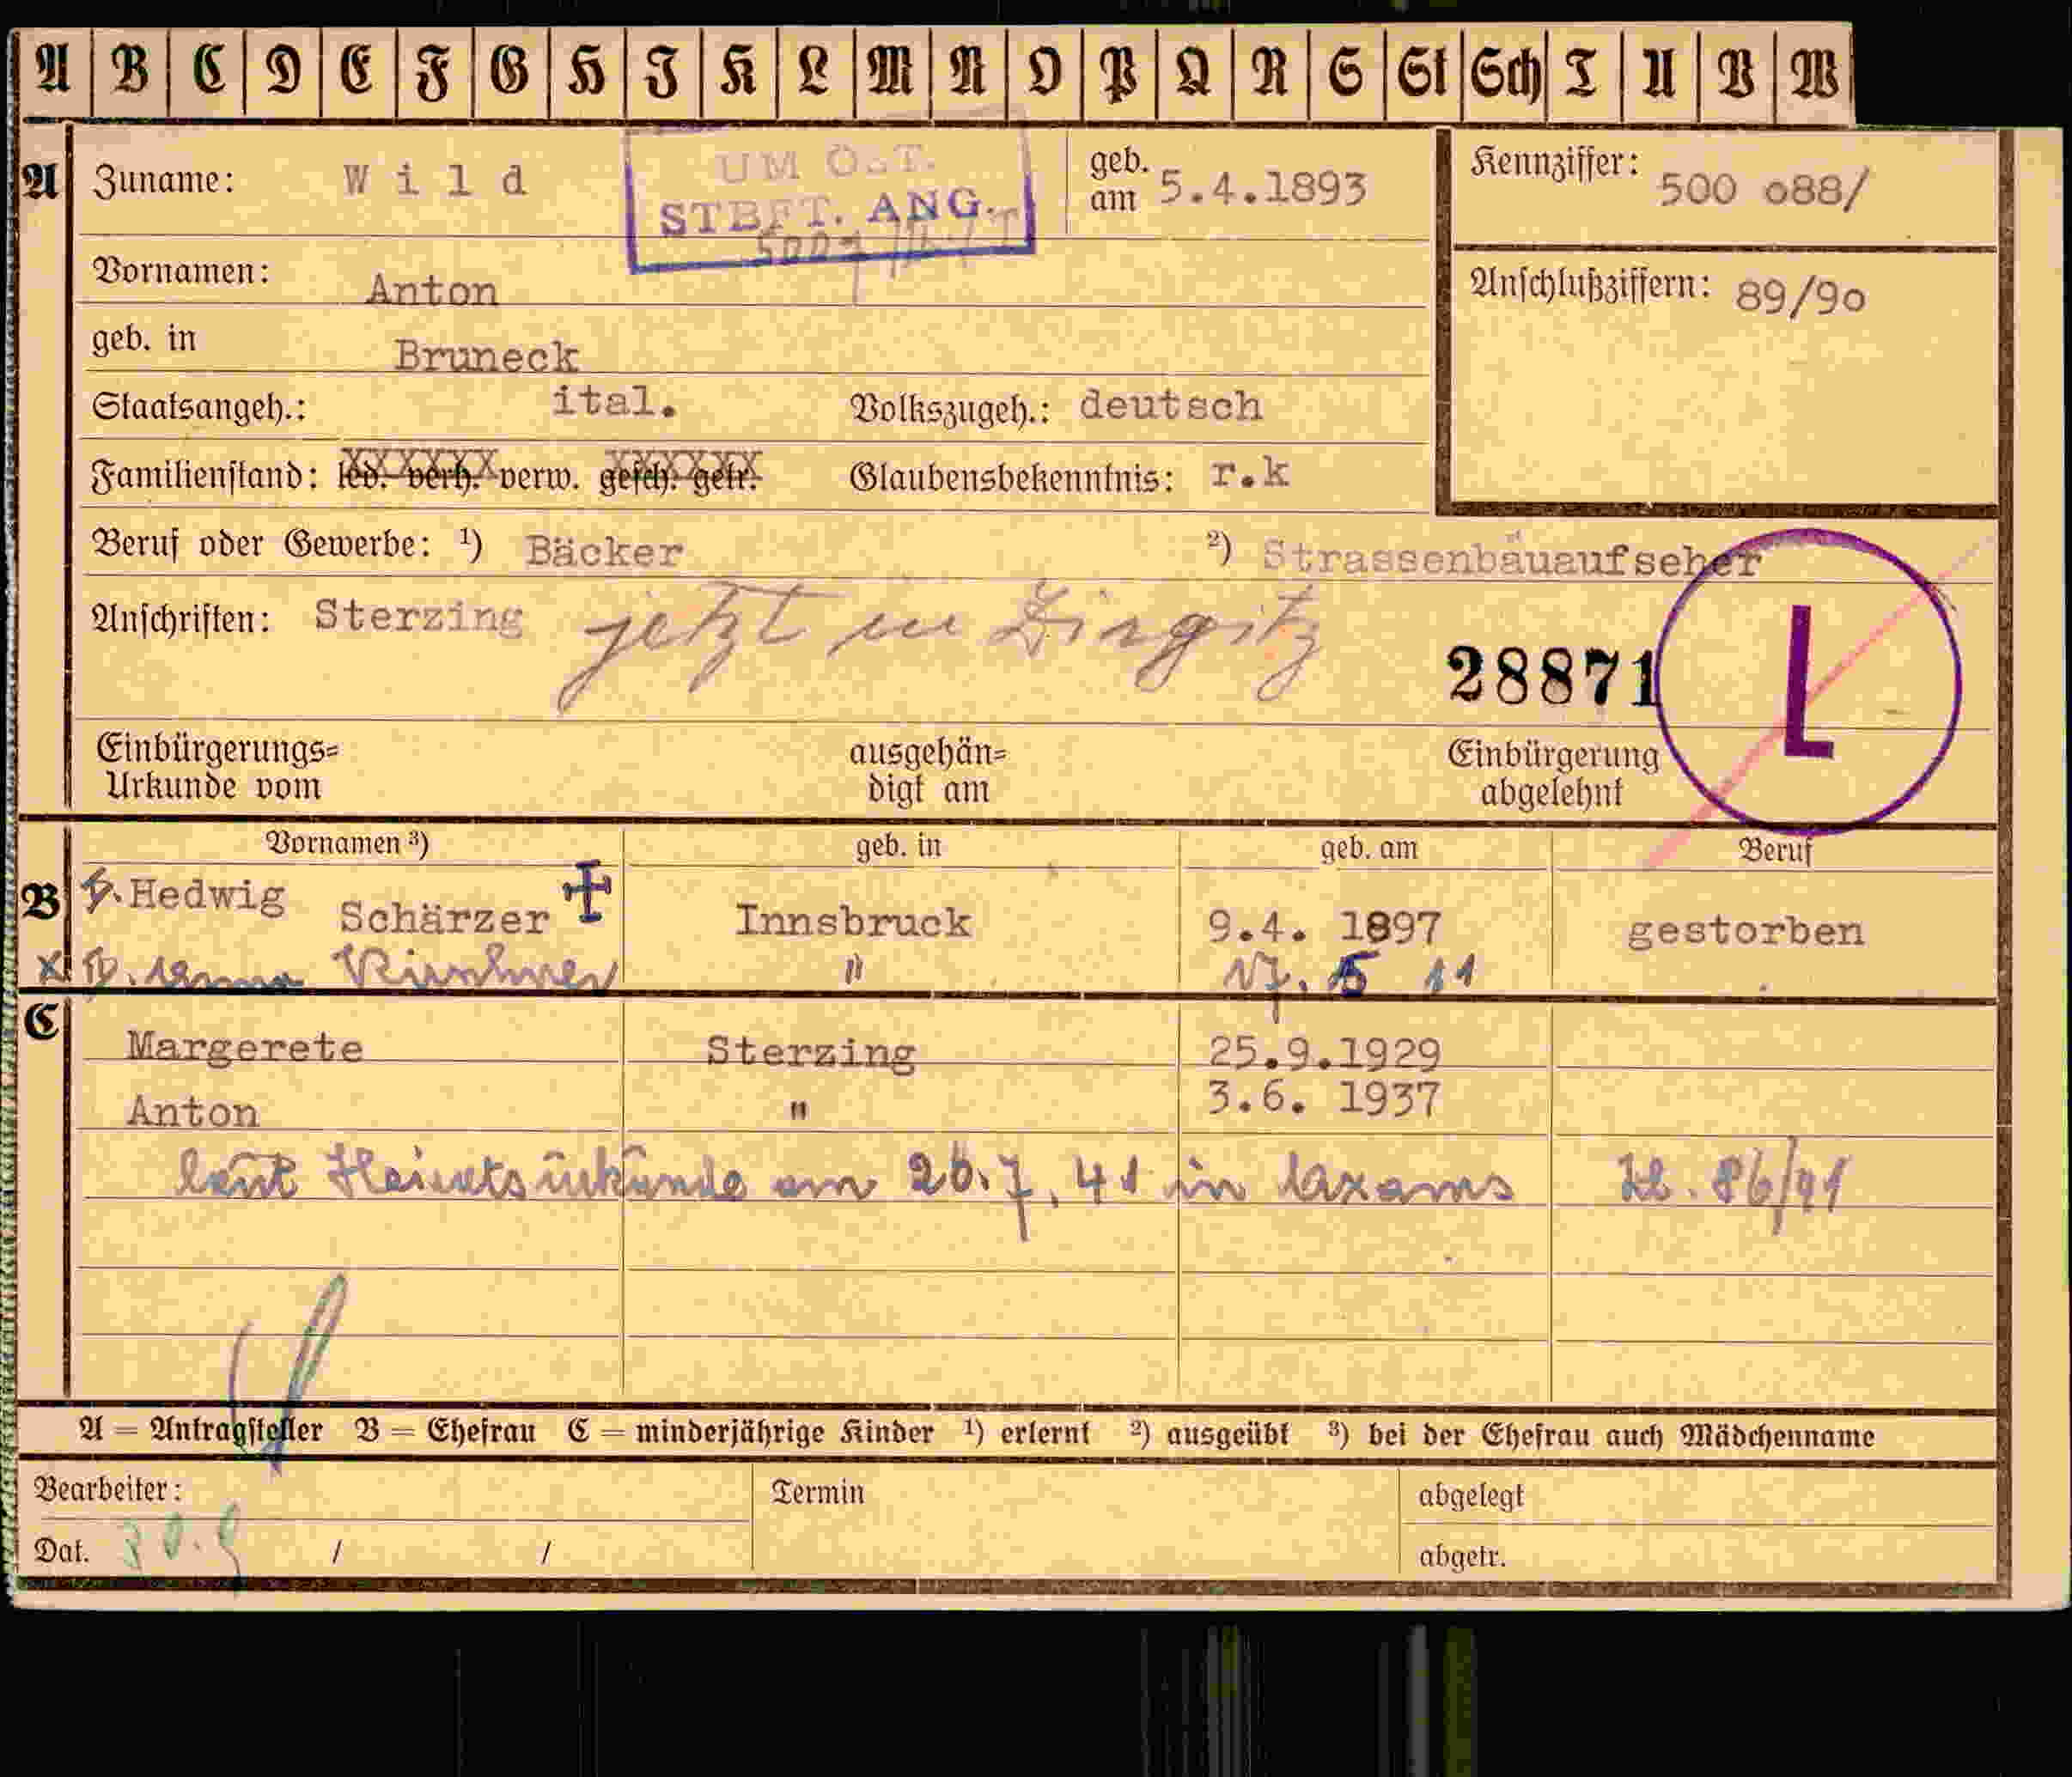 A B C D E F G H J K L M N O P Q R S St Sch T U V W
A Zuname: Wild UM ÖST. geb. am 5.4.1893 Kennziffer: 500 o88/
STBFT. ANG.
Vornamen: Anton Anschlußziffern: 89/9o
geb. in Bruneck
Staatsangeh.: ital. Volkszugeh.: deutsch
Familienstand: led. verh. verw. gesch. getr. Glaubensbekenntnis: r.k
Beruf oder Gewerbe: ¹) Bäcker ²) Strassenbauaufseher
Anschriften: Sterzing jetzt in Zirgitz
28871 L
Einbürgerungs= ausgehän= Einbürgerung
Urkunde vom digt am abgelehnt
Vornamen ³) geb. in geb. am Beruf
B Hedwig Schärzer Innsbruck 9.4. 1897 gestorben
x Kirchner " 17. 5 11
C
Margerete Sterzing 25.9.1929
Anton " 3.6. 1937
laut Heiratsurkunde am 26.7.41 in Axams 86/41
A = Antragsteller B = Ehefrau C = minderjährige Kinder ¹) erlernt ²) ausgeübt ³) bei der Ehefrau auch Mädchenname
Bearbeiter: Termin abgelegt
Dat. 30.9 / / abgetr.